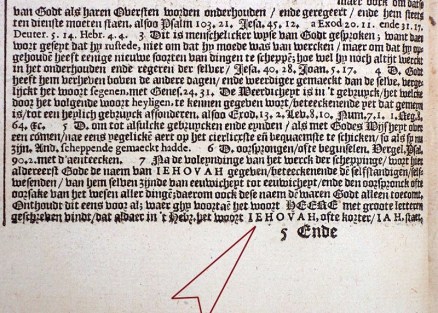 maer oock om dat
van Godt als haren Oversten worden onderhouden / ende geregeert / ende hem steets
ten dienste moeten staen. alsoo Psalm 103, 21. Jesa, 45, 12. 2 Exod 20. 11. ende 31. 17.
Deuter. 5. 14. Hebr. 4. 4. 3 Dit is menschelicker wyse van Godt gesproken; want dan
wort geseyt dat hy rustede, niet om dat hy moede was van wercken / maer om dat hy op-
gehoudē heeft eenige nieuwe soorten van dingen te scheppē; hoe wel hy noch altijt werckt
in het onderhouden ende regeren der selver / Jesa, 40, 28. Joan, 5. 17 4 D. God
heeft hem verheven boven de andere dagen / ende weerdiger gemaeckt dan de selve. verge-
lijckt het woort segenen. met Genes. 24. 31. De Weerdicheyt is in 't gebruyck / het welck
door het volgende woort heyligen. te kennen gegeven wort / beteeckenende yet dat gemeyn
is / tot een heylich gebruyck afsonderen. alsoo Exod. 13, 2. Lev. 8, 10. Num. 7, 1. Neg. 8,
64, &c. 5 D. om tot alsulcke gebruycken ende eynden / als met Godes Wijsheyt over-
een comen / nae eens yegelicke aert op het cierlicxste eñ bequaemste te schicken / so als sp nu
zijn. And. scheppende gemaeckt hadde. 6 D. oorsprongen / ofte beginselen. Vergel. Psa.
90, 2. met d'aenteecken. 7 Na de voleyndinge van het werck der scheppinge / wort hier
aldereerst Gode de naem van IEHOVAH gegeven / beteeckenende dē selfstandigen / self-
wesenden / van hem selven zijnde van eeuwicheyt tot eeuwicheyt / ende den oorspronck ofte
oorsake van het wesen aller dingē; daerom oock dese naem dē waren Godt alleen toecomt,
Onthoudt dit eens voor al; waer ghy voortaē het woort HEERE met groote letteren
geschreven vindt / dat aldaer in 't Hebr. het woort IEHOVAH, ofte korter / IAH. staet.
5 Ende